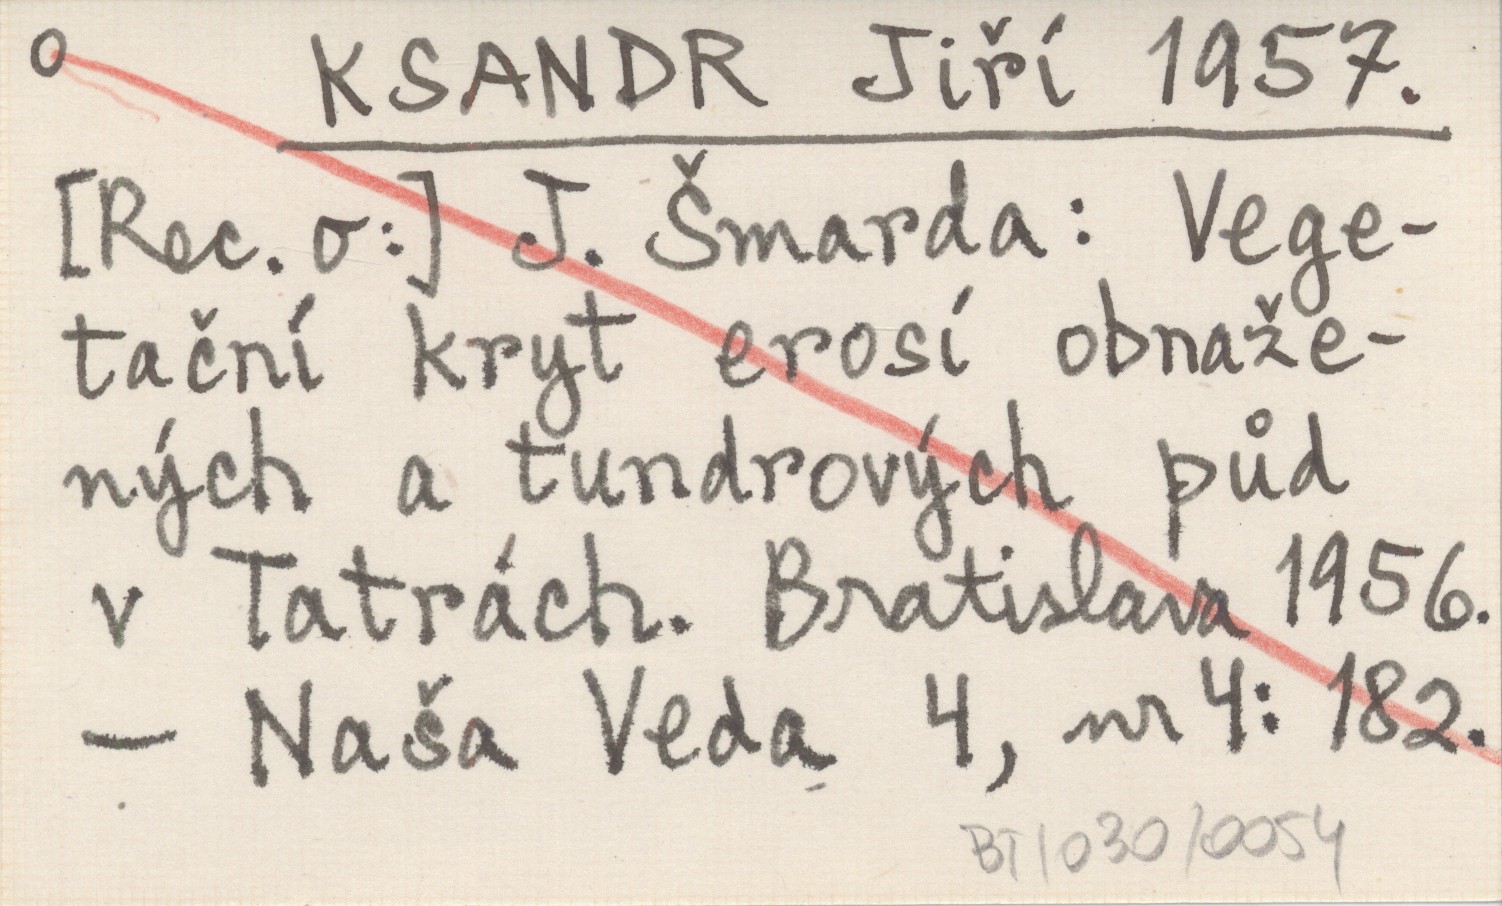 o KSANDR Jiří 1957.
[Rec. o:] J. Šmarda: Vege-
tační kryt erosí obnaže-
ných a tundrových půd
v Tatrách. Bratislava 1956.
— Naša Veda 4, nr 4: 182.
BT/030/0054